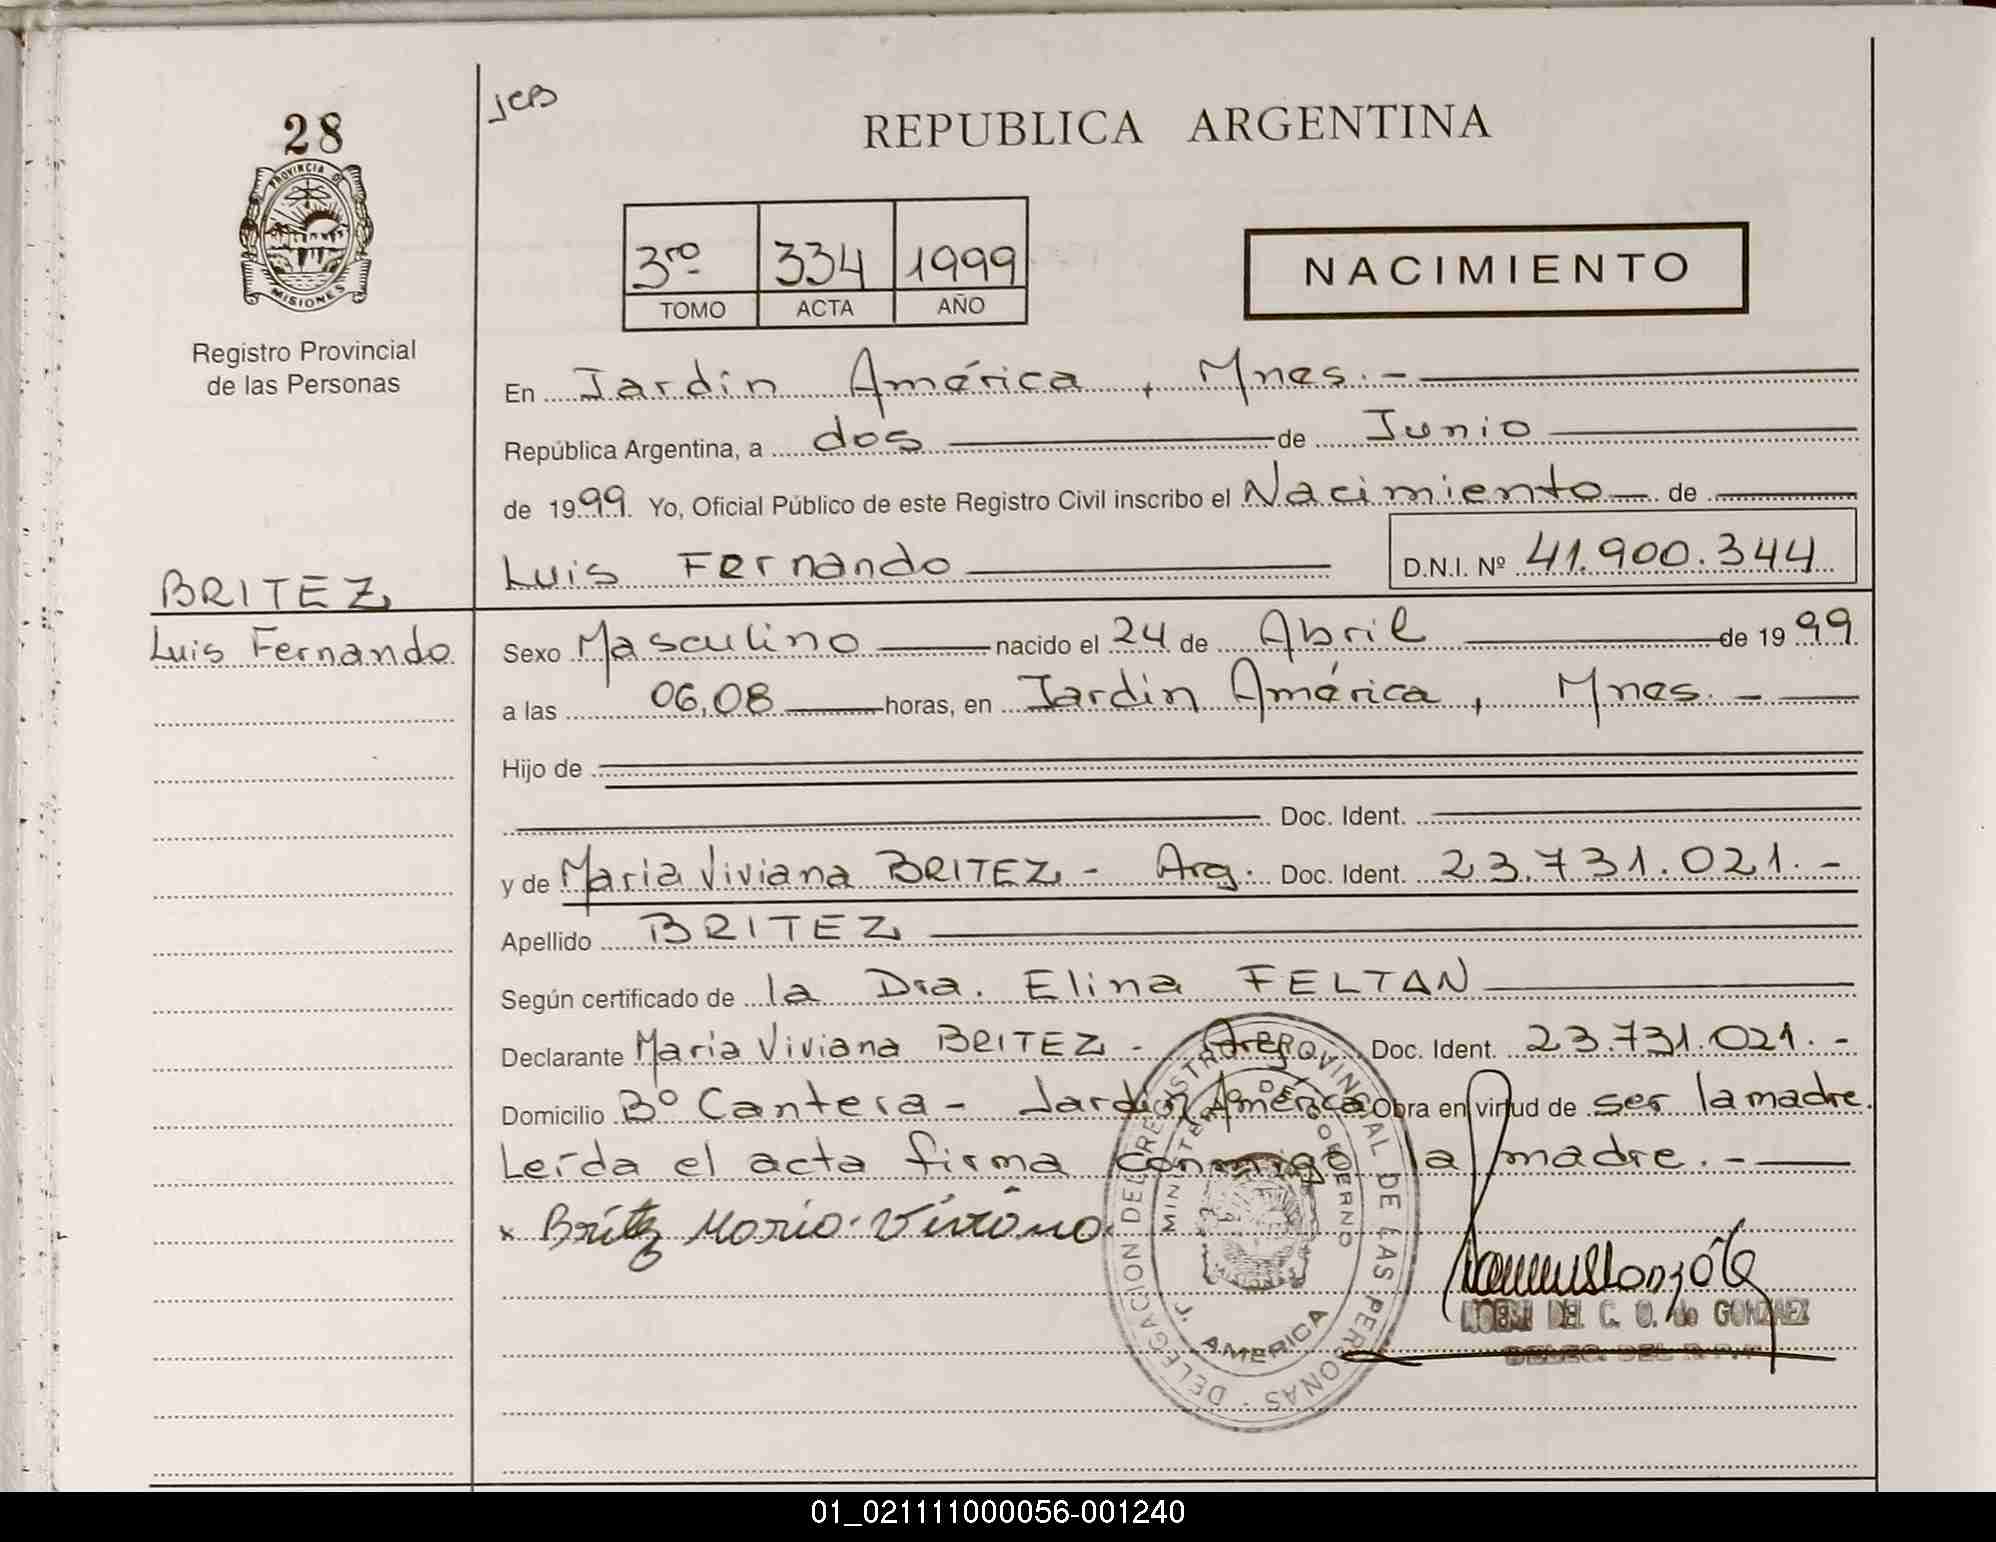 28
JCB
REPUBLICA ARGENTINA
PROVINCIA DE MISIONES
3ro 334 1999
TOMO ACTA AÑO
NACIMIENTO
Registro Provincial
de las Personas
En Jardín América, Mnes.-
República Argentina, a dos de Junio
de 1999 Yo, Oficial Público de este Registro Civil inscribo el Nacimiento de
Luis Fernando D.N.I. Nº 41.900.344
BRITEZ
Luis Fernando
Sexo Masculino nacido el 24 de Abril de 1999
a las 06,08 horas, en Jardín América, Mnes.-
Hijo de
Doc. Ident.
y de Maria Viviana BRITEZ - Arg. Doc. Ident. 23.731.021.-
Apellido BRITEZ
Según certificado de la Dra. Elina FELTAN
Declarante Maria Viviana BRITEZ - Arg. Doc. Ident. 23.731.021.-
Domicilio Bº Cantera - Jardín América Obra en virtud de ser la madre.
Leída el acta firma conmigo la madre.-
x Britez Maria Viviana
DELEGACION DEL REGISTRO PROVINCIAL DE LAS PERSONAS
MINISTERIO DE GOBIERNO
J. AMERICA
NOEMI DEL C. O. de GONZALEZ
01_021111000056-001240